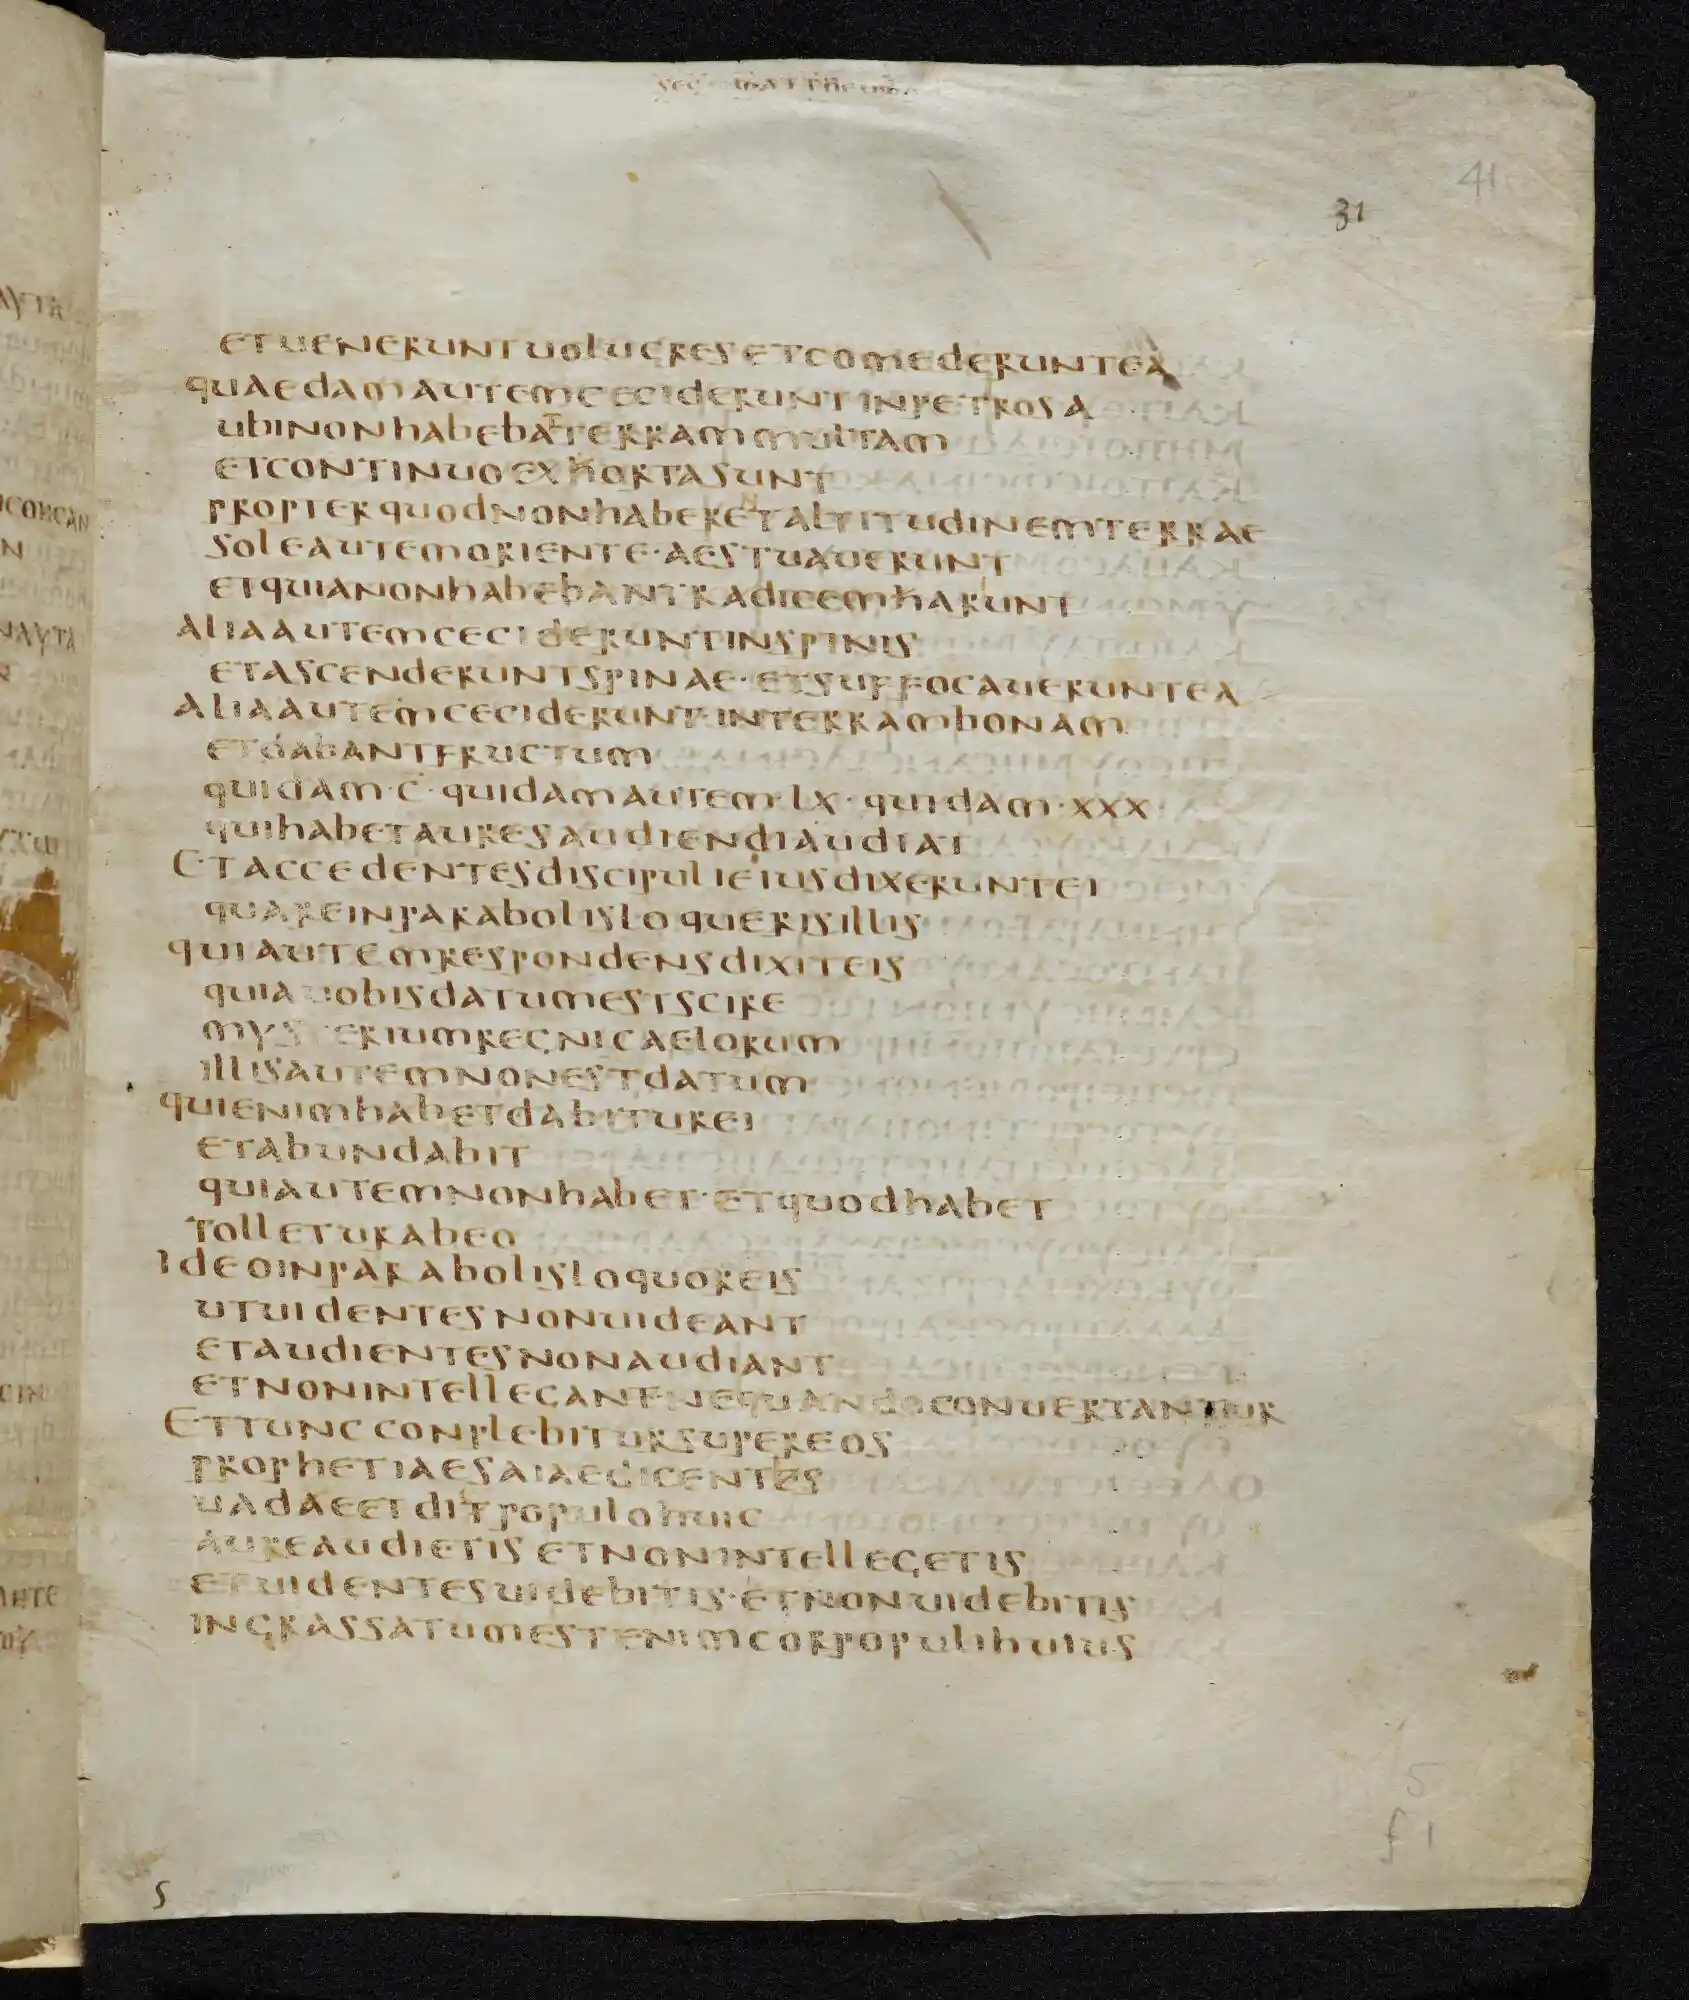 sec mattheum
41
31
etueneruntuolucresetcomederuntea
quaedamautemcecideruntinpetrosa
ubinonhabebatterrammultam
etcontinuoexhortasunt
propterquodnonhaberetaltitudinemterrae
soleautemoriente·aestuauerunt
etquianonhabebantradicemharunt
aliaautemcecideruntinspinis
etascenderuntspinae·etsuffocaueruntea
aliaautemceciderunt·interrambonam
etdabantfructum
quidam·c·quidamautem·lx·quidam·xxx·
quihabetauresaudiendiaudiat
Etaccedentesdiscipulieiusdixeruntei
quareinparabolisloquerisillis
quiautemrespondensdixiteis
quiauobisdatumestscire
mysteriumregnicaelorum
illisautemnonestdatum
quienimhabetdabiturei
etabundabit
quiautemnonhabet·etquodhabet
tolleturabeo
Ideoinparabolisloquoreis
utuidentesnonuideant
etaudientesnonaudiant
etnonintellegant·nequandoconuertantur
Ettunc conplebitursupereos
prophetiaesaiaedicentes
uadaeetditpopulohuic
aureaudietis etnonintellegetis
etuidentesuidebitis·etnonuidebitis
ingrassatumestenimcorpopulihuius
5
f 1
s